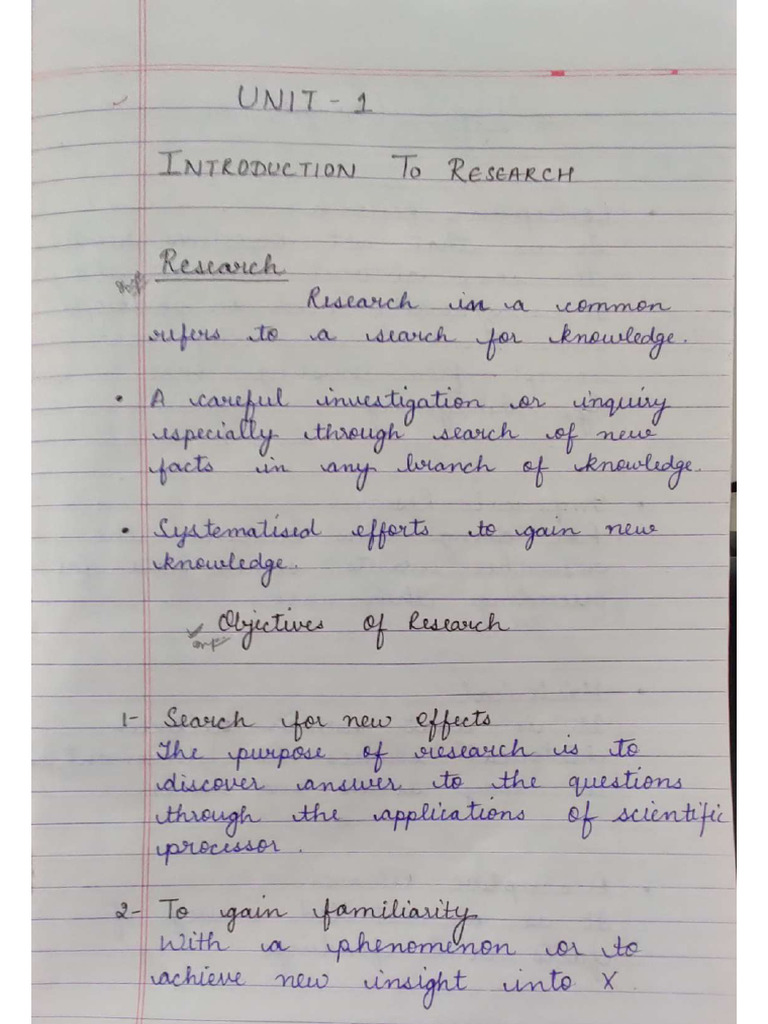 UNIT - 1
INTRODUCTION TO RESEARCH
Research
Research in a common
refers to a search for knowledge.
• A careful investigation or inquiry
especially through search of new
facts in any branch of knowledge.
• Systematised efforts to gain new
knowledge.
Objectives of Research
1- Search for new effects
The purpose of research is to
discover answer to the questions
through the applications of scientific
processor.
2- To gain familiarity
With a phenomenon or to
achieve new insight into X